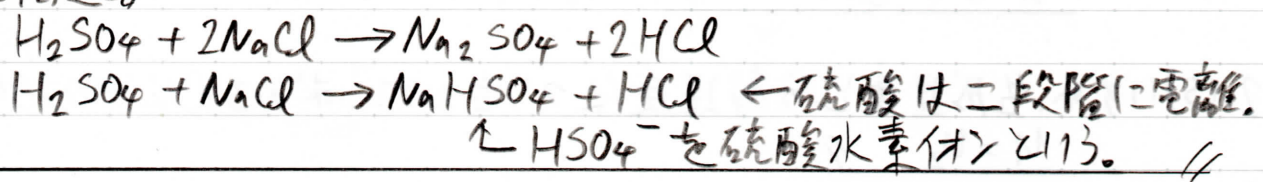 H₂SO₄ + 2NaCl → Na₂SO₄ + 2HCl
H₂SO₄ + NaCl → NaHSO₄ + HCl ←硫酸は二段階に電離.
↑ HSO₄⁻を硫酸水素イオンという。 //